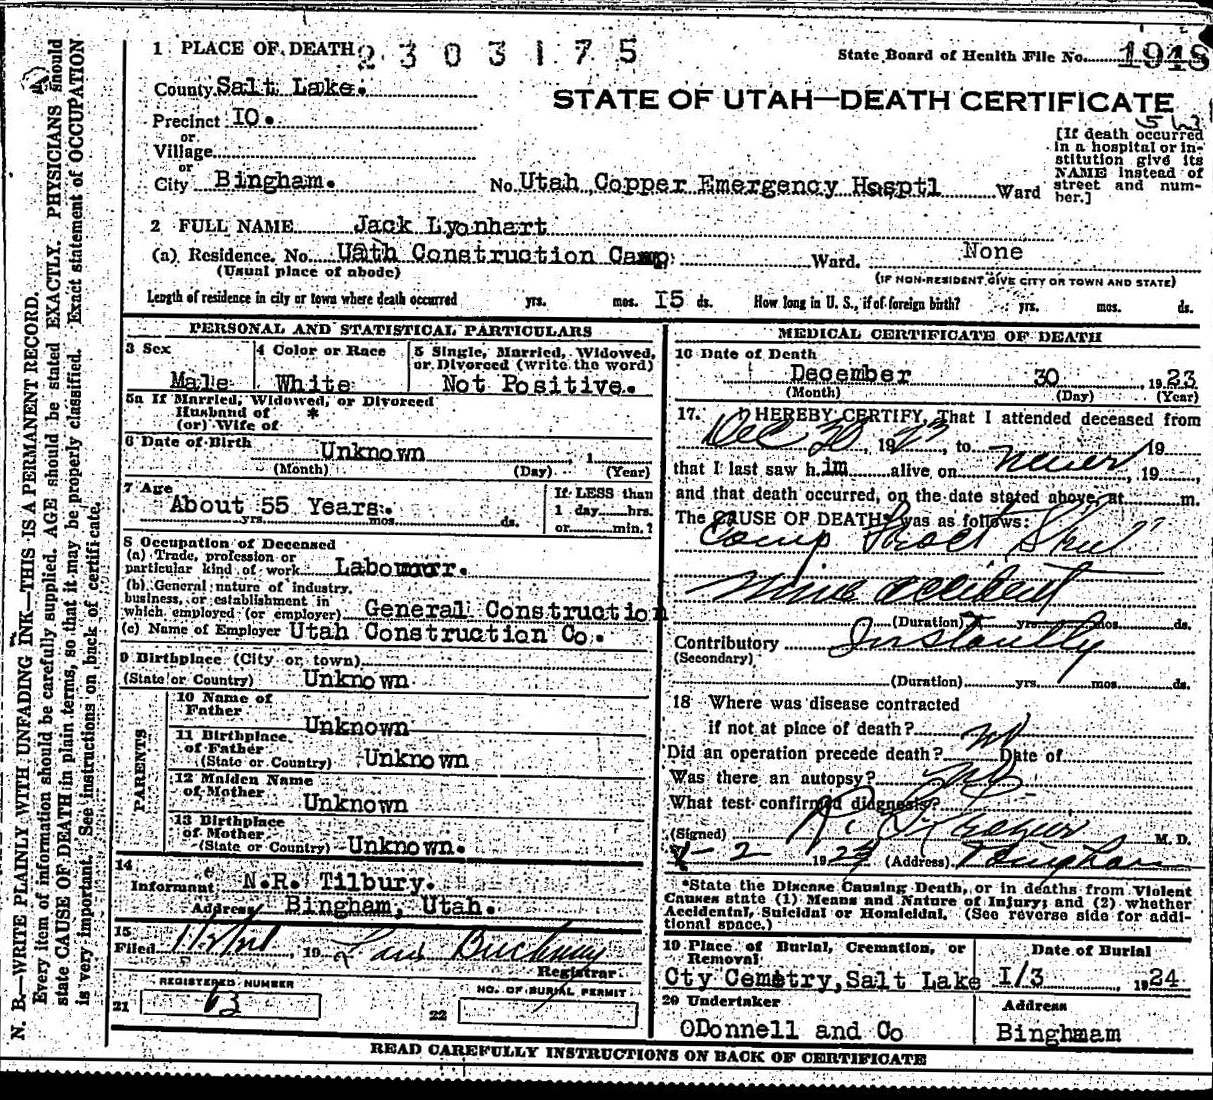 1 PLACE OF DEATH 2303175
State Board of Health File No. 1948
County Salt Lake.
STATE OF UTAH—DEATH CERTIFICATE
Precinct IO.
or
Village
or
City Bingham. No. Utah Copper Emergency Hosptl Ward
[If death occurred in a hospital or institution give its NAME instead of street and number.]
2 FULL NAME Jack Lyonhart
(a) Residence. No. Uath Construction Camp Ward. None
(Usual place of abode) (IF NON-RESIDENT GIVE CITY OR TOWN AND STATE)
Length of residence in city or town where death occurred yrs. mos. I5 ds. How long in U. S., if of foreign birth? yrs. mos. ds.
PERSONAL AND STATISTICAL PARTICULARS
3 Sex
Male
4 Color or Race
White
5 Single, Married, Widowed, or Divorced (write the word)
Not Positive.
5a If Married, Widowed, or Divorced
Husband of *
(or) Wife of
6 Date of Birth
Unknown , 1
(Month) (Day) (Year)
7 Age
About 55 Years.
yrs. mos. ds.
If LESS than
1 day hrs.
or min.?
8 Occupation of Deceased
(a) Trade, profession or
particular kind of work Labourer.
(b) General nature of industry,
business, or establishment in
which employed (or employer) General Construction
(c) Name of Employer Utah Construction Co.
9 Birthplace (City or town)
(State or Country) Unknown
PARENTS
10 Name of
Father
Unknown
11 Birthplace
of Father
(State or Country) Unknown
12 Maiden Name
of Mother
Unknown
13 Birthplace
of Mother
(State or Country) Unknown.
14
Informant N.R. Tilbury.
Address Bingham, Utah.
15
Filed , 19
Registrar.
REGISTERED NUMBER
21 63
NO. OF BURIAL PERMIT
22
MEDICAL CERTIFICATE OF DEATH
16 Date of Death
December 30 , 1923
(Month) (Day) (Year)
17. I HEREBY CERTIFY, That I attended deceased from
Dec 30, 1923, to never 19
that I last saw him alive on never, 19
and that death occurred, on the date stated above, at m.
The CAUSE OF DEATH* was as follows:
Comp Fract Skull
mine accident
(Duration) yrs. mos. ds.
Contributory Instantly
(Secondary)
(Duration) yrs. mos. ds.
18 Where was disease contracted
if not at place of death?
Did an operation precede death? no Date of
Was there an autopsy? no
What test confirmed diagnosis?
(Signed) M. D.
1-2 1924 (Address) Bingham
*State the Disease Causing Death, or in deaths from Violent
Causes state (1) Means and Nature of Injury; and (2) whether
Accidental, Suicidal or Homicidal. (See reverse side for additional space.)
19 Place of Burial, Cremation, or
Removal
Cty Cemetry, Salt Lake
Date of Burial
I/3 , 1924
20 Undertaker
ODonnell and Co
Address
Bingham
READ CAREFULLY INSTRUCTIONS ON BACK OF CERTIFICATE
N. B.—WRITE PLAINLY WITH UNFADING INK—THIS IS A PERMANENT RECORD.
Every item of information should be carefully supplied. AGE should be stated EXACTLY. PHYSICIANS should
state CAUSE OF DEATH in plain terms, so that it may be properly classified. Exact statement of OCCUPATION
is very important. See instructions on back of certificate.